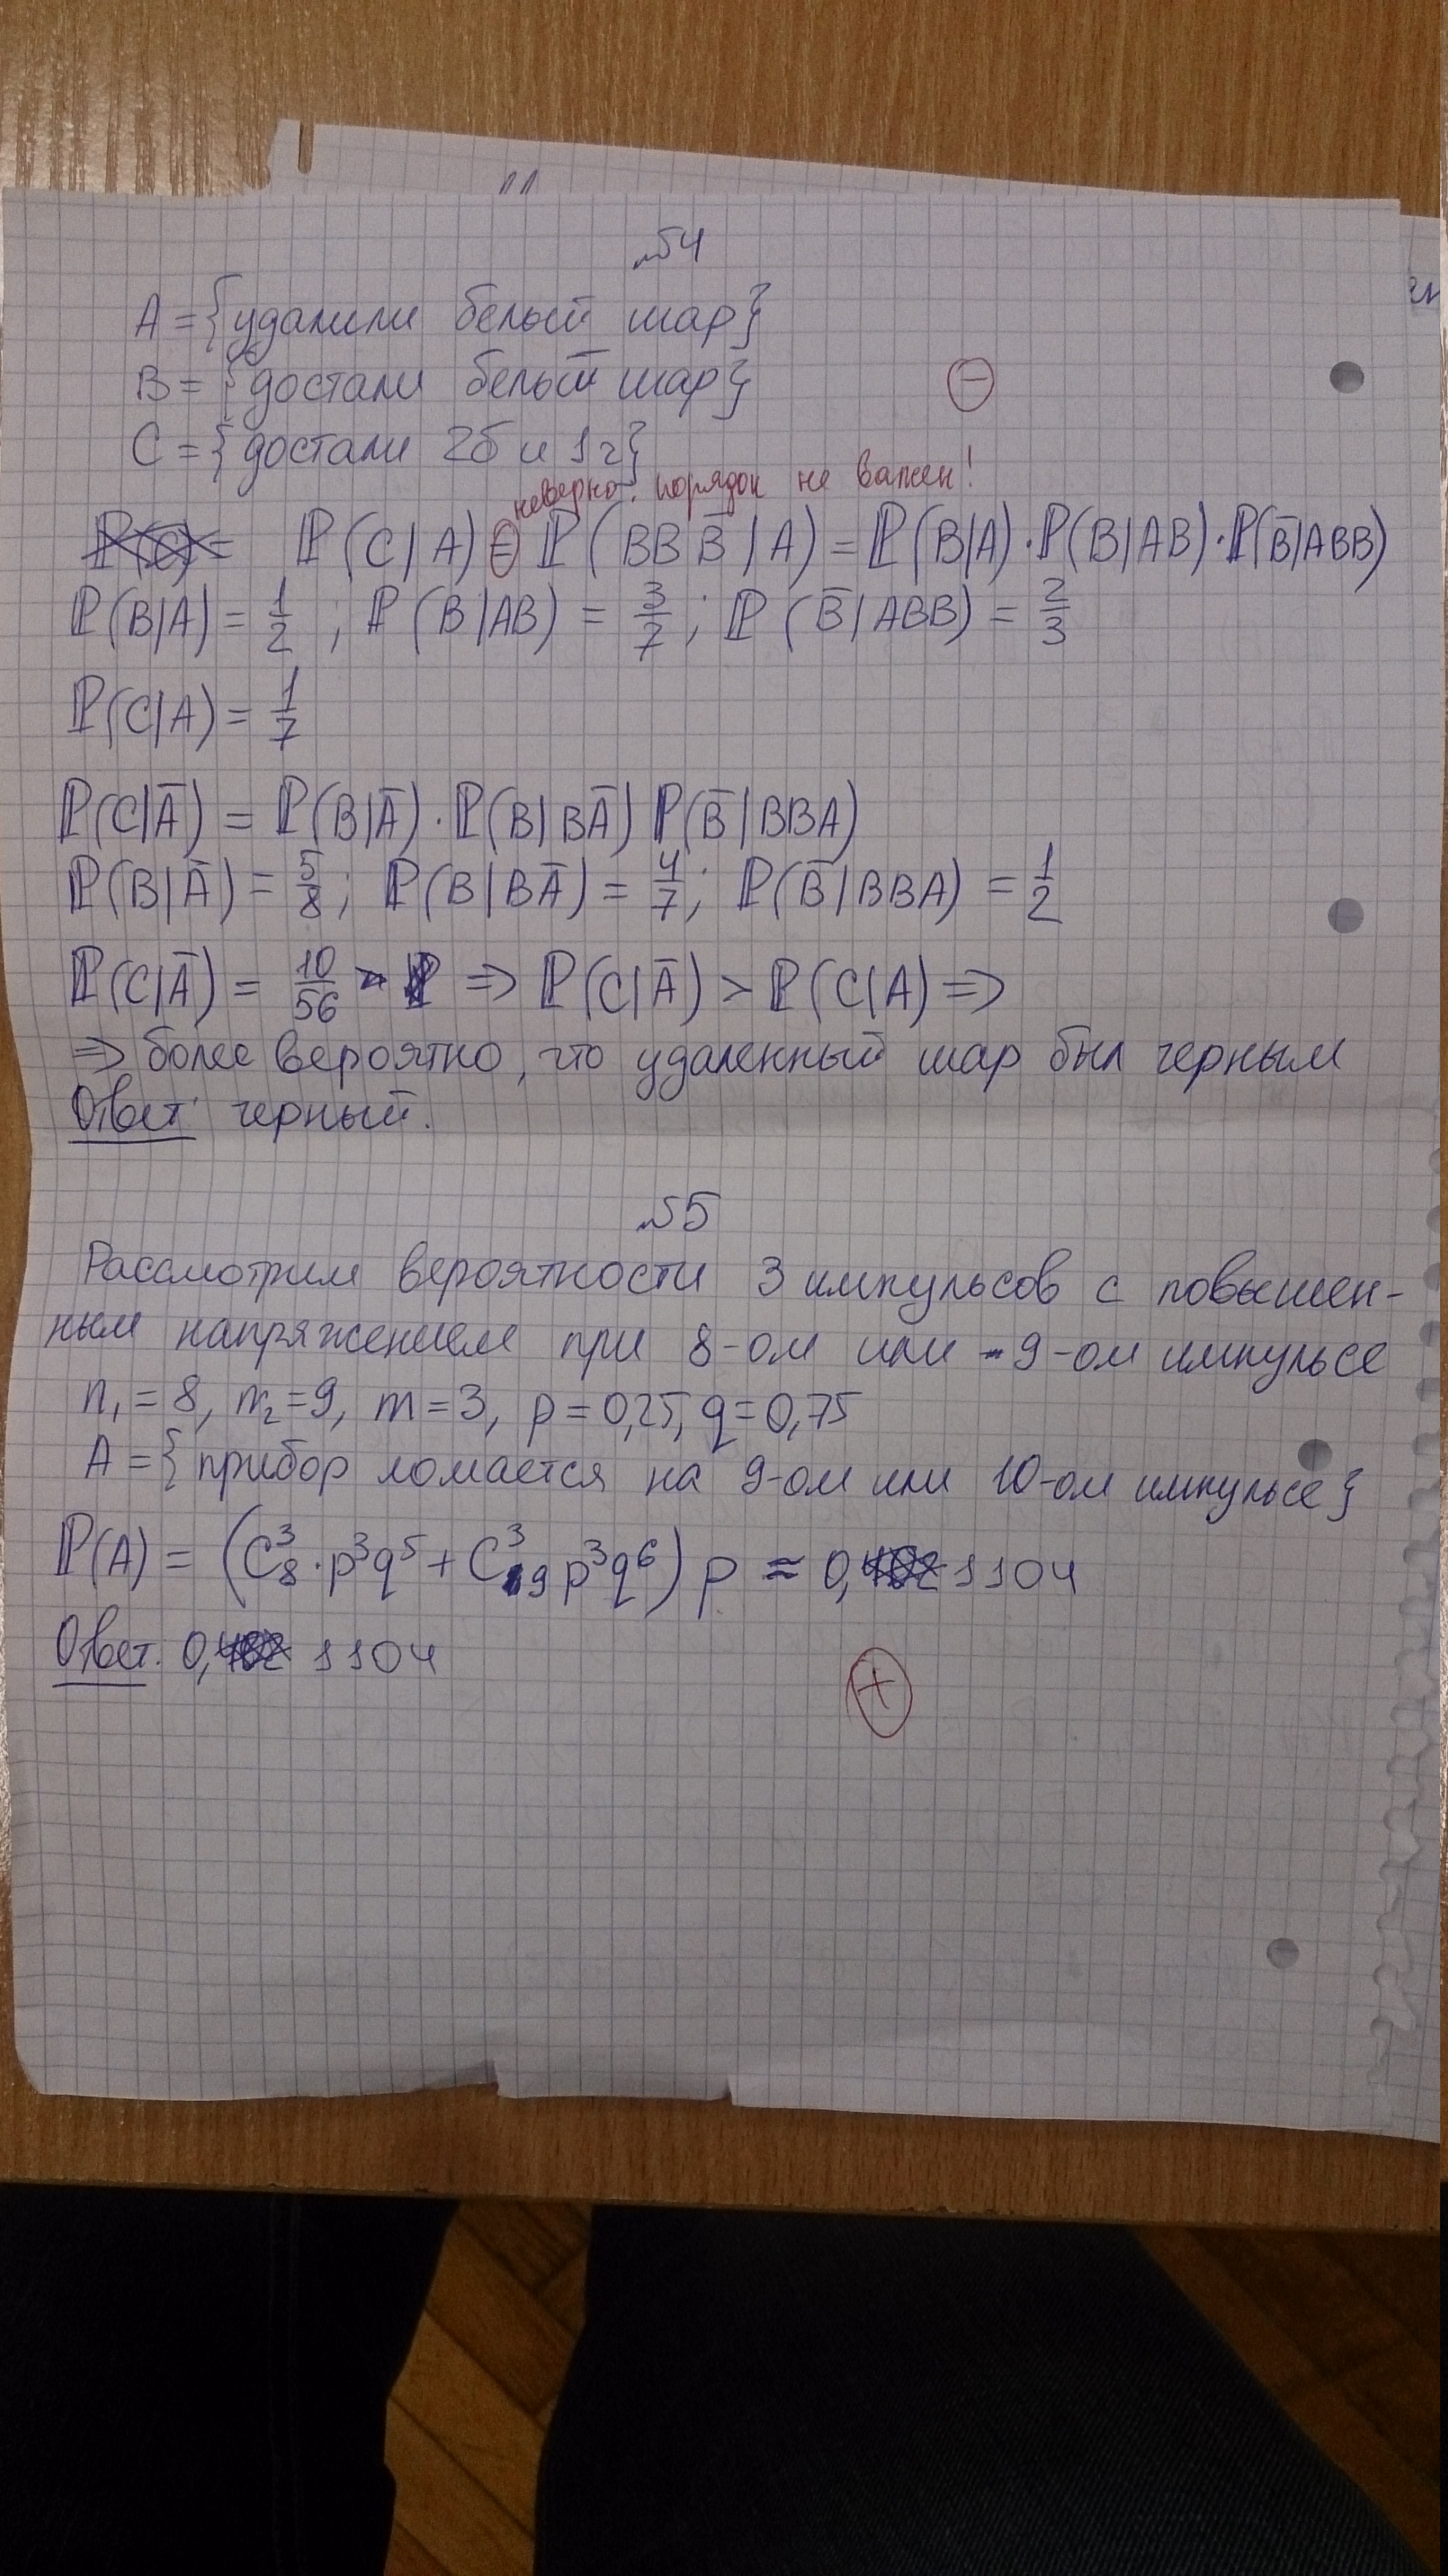 №4
A = {удалили белый шар}
B = {достали белый шар}
C = {достали 2б и 1ч}
неверно. порядок не важен!
P(C|A) = P(BBB̅|A) = P(B|A)·P(B|AB)·P(B̅|ABB)
P(B|A) = 1/2 ; P(B|AB) = 3/7 ; P(B̅|ABB) = 2/3
P(C|A) = 1/7
P(C|A̅) = P(B|A̅)·P(B|BA̅) P(B̅|BBA)
P(B|A̅) = 5/8 ; P(B|BA̅) = 4/7 ; P(B̅|BBA) = 1/2
P(C|A̅) = 10/56 ⇒ P(C|A̅) > P(C|A) ⇒
⇒ более вероятно, что удаленный шар был черным
Ответ: черный.
№5
Рассмотрим вероятности 3 импульсов с повышен-
ным напряжением при 8-ом или 9-ом импульсе
n₁ = 8, n₂ = 9, m = 3, p = 0,25, q = 0,75
A = {прибор ломается на 9-ом или 10-ом импульсе}
P(A) = (C₈³·p³q⁵ + C₉³p³q⁶) p ≈ 0,1104
Ответ. 0,1104